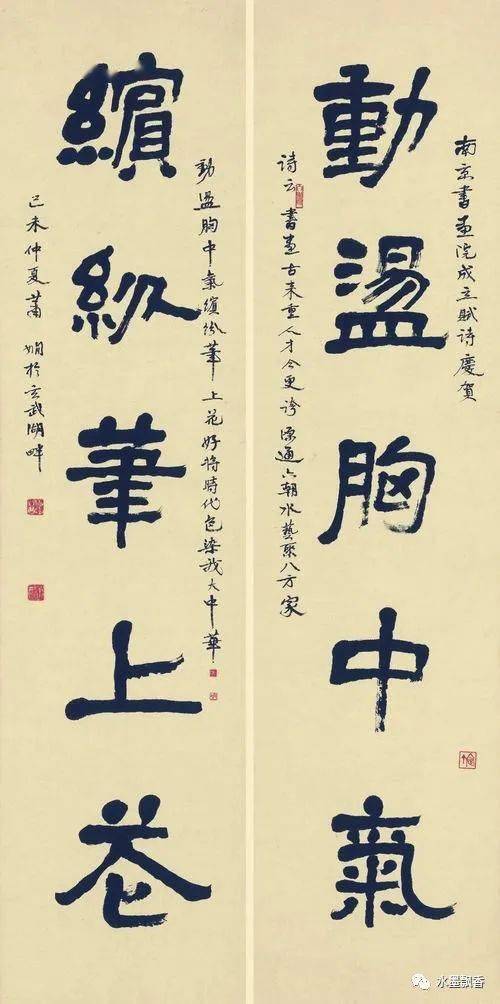 南京書畫院成立賦詩慶賀
動盪胸中氣
诗云書畫古来重人才今更誇源通六朝水藝聚八方家
動盪胸中氣繽紛筆上花好將時代色染我大中華
繽紛筆上花
己未仲夏蕭嫻於玄武湖畔
水墨飘香